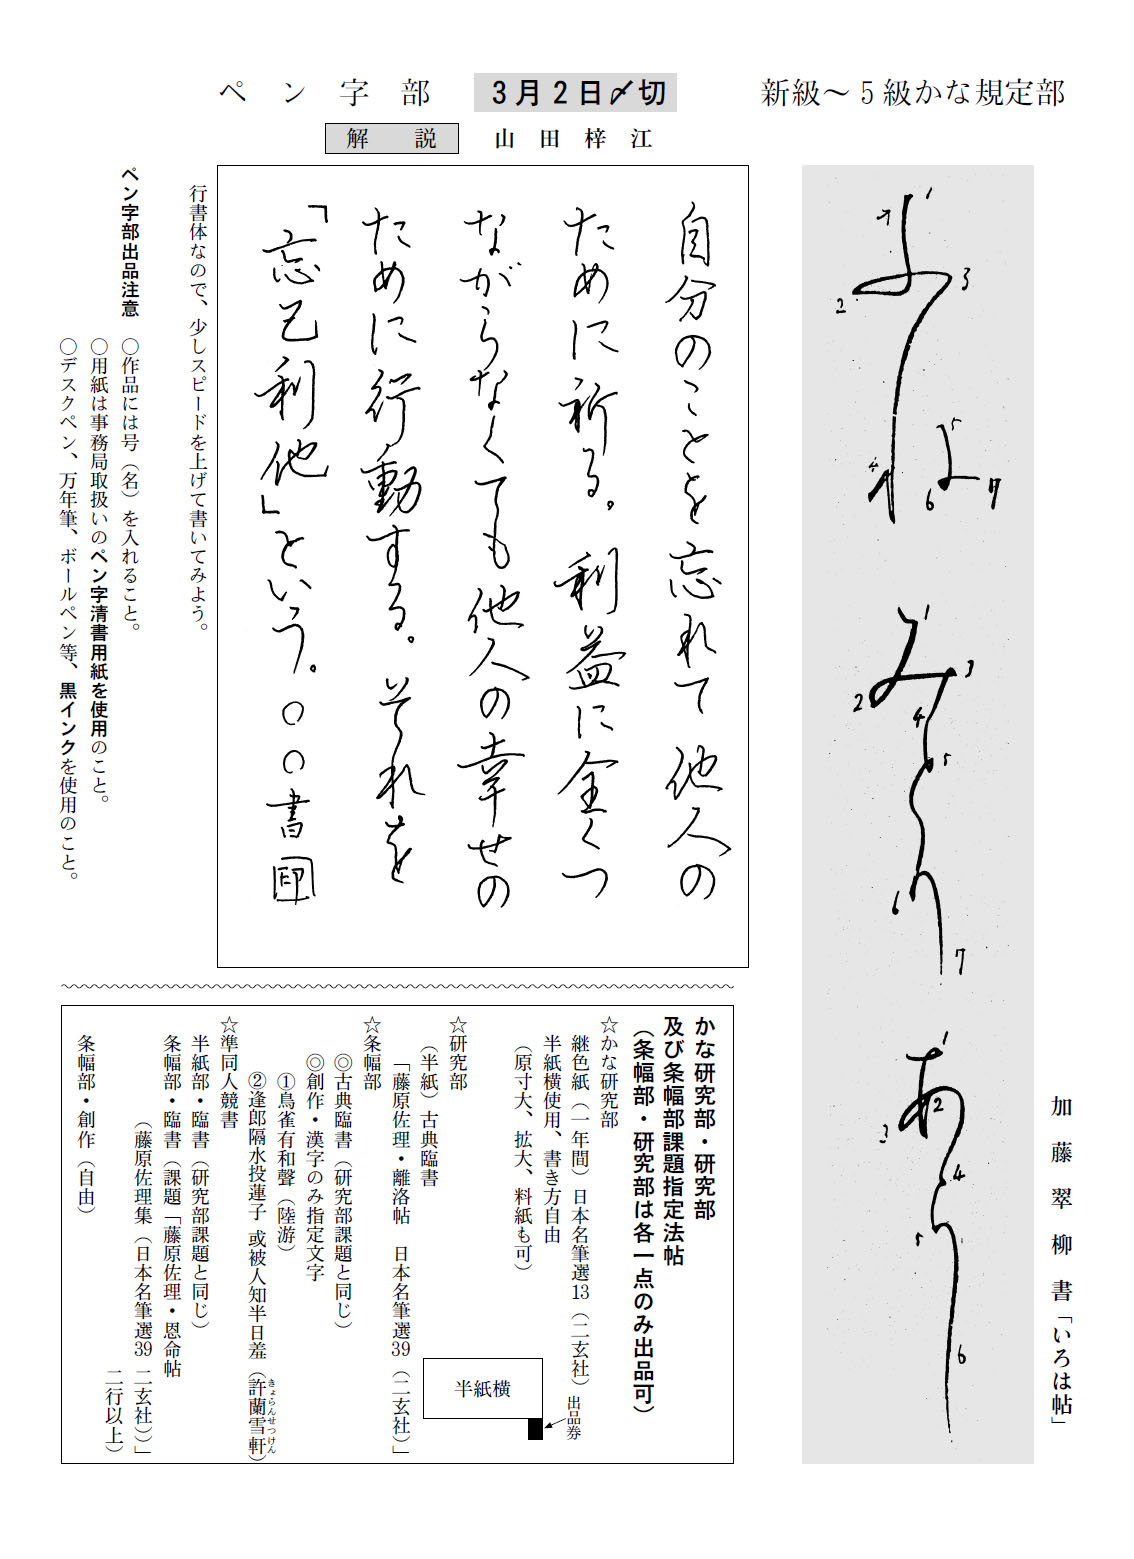 ペン字部
3月2日〆切
新級～5級かな規定部
解説
山田梓江
自分のことを忘れて他人の
ために祈る。利益に全くつ
ながらなくても他人の幸せの
ために行動する。それを
「忘己利他」という。○○書印
行書体なので、少しスピードを上げて書いてみよう。
ペン字部出品注意
○作品には号（名）を入れること。
○用紙は事務局取扱いのペン字清書用紙を使用のこと。
○デスクペン、万年筆、ボールペン等、黒インクを使用のこと。
1
2
3
4
5
6
7
1
2
3
4
5
6
7
1
2
3
4
5
6
加藤翠柳書「いろは帖」
かな研究部・研究部
及び条幅部課題指定法帖
（条幅部・研究部は各一点のみ出品可）
☆かな研究部
継色紙（一年間）日本名筆選13（二玄社）
半紙横使用、書き方自由
（原寸大、拡大、料紙も可）
半紙横
出品券
☆研究部
（半紙）古典臨書
「藤原佐理・離洛帖　日本名筆選39（二玄社）」
☆条幅部
◎古典臨書（研究部課題と同じ）
◎創作・漢字のみ指定文字
①鳥雀有和聲（陸游）
②逢郎隔水投蓮子 或被人知半日羞（許蘭雪軒）
きょらんせつけん
☆準同人競書
半紙部・臨書（研究部課題と同じ）
条幅部・臨書（課題「藤原佐理・恩命帖
（藤原佐理集（日本名筆選39 二玄社））」
二行以上）
条幅部・創作（自由）